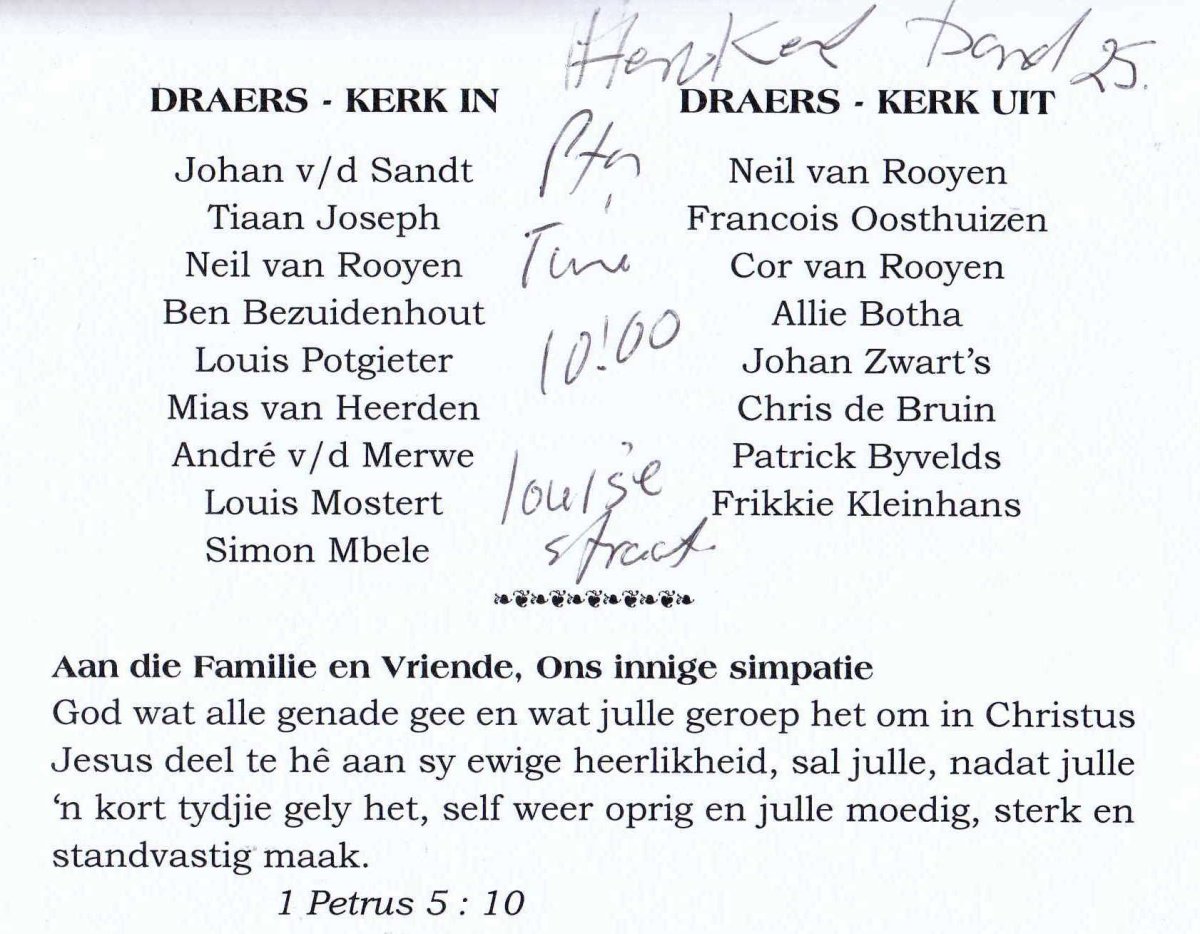 25.
DRAERS - KERK IN
Johan v/d Sandt
Tiaan Joseph
Neil van Rooyen
Ben Bezuidenhout
Louis Potgieter
Mias van Heerden
André v/d Merwe
Louis Mostert
Simon Mbele
Pta
Time
10:00
louise
straat
DRAERS - KERK UIT
Neil van Rooyen
Francois Oosthuizen
Cor van Rooyen
Allie Botha
Johan Zwart's
Chris de Bruin
Patrick Byvelds
Frikkie Kleinhans
Aan die Familie en Vriende, Ons innige simpatie
God wat alle genade gee en wat julle geroep het om in Christus
Jesus deel te hê aan sy ewige heerlikheid, sal julle, nadat julle
‘n kort tydjie gely het, self weer oprig en julle moedig, sterk en
standvastig maak.
1 Petrus 5 : 10